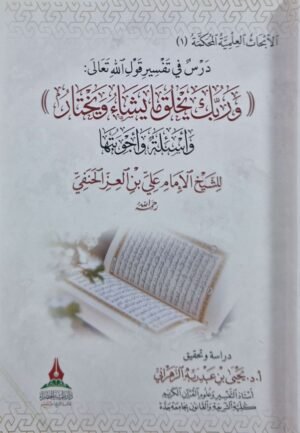 الأبحاث العلمية المحكمة (١)
درس في تفسير قول الله تعالى:
﴿ وربك يخلق ما يشاء ويختار ﴾
وأسئلة وأجوبتها
للشيخ الإمام علي بن العز الحنفي
رحمه الله
دراسة وتحقيق
أ.د. يحيى بن عبد ربه الزهراني
أستاذ التفسير وعلوم القرآن الكريم
كلية الشريعة والقانون بجامعة جدة